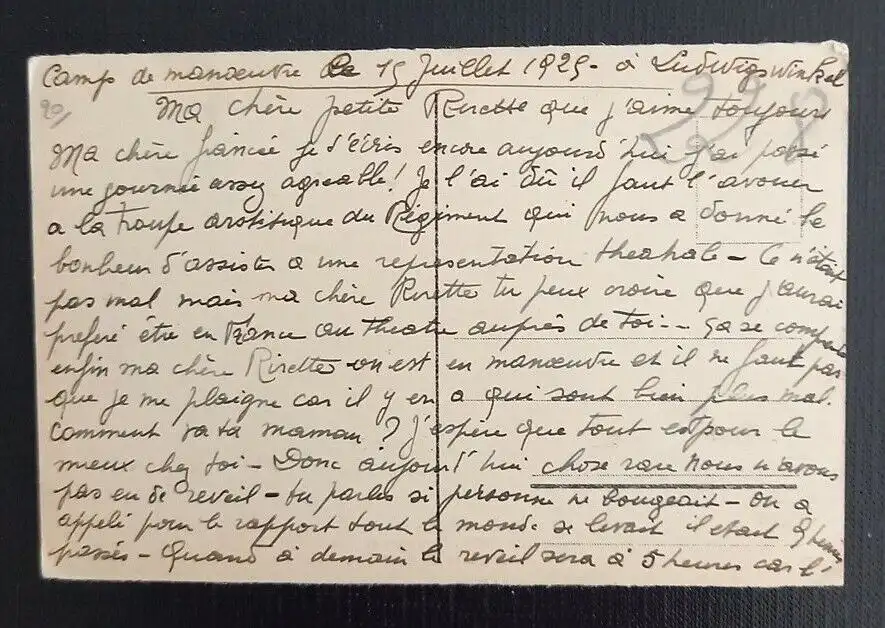 Camp de manœuvre le 15 Juillet 1925 - à Ludwigswinkel
20/
228
Ma chère petite Rirette que j'aime toujours
Ma chère fiancée je t'écris encore aujourd'hui j'ai passé
une journée assez agréable! Je l'ai dû il faut l'avouer
a la Troupe artistique du Régiment qui nous a donné le
bonheur d'assister a une representation theatrale - Ce n'était
pas mal mais ma chère Rirette tu peux croire que j'aurai
préféré être en France au theatre auprès de toi -- ça se comprend
enfin ma chère Rirette on est en manœuvre et il ne faut pas
que je me plaigne car il y en a qui sont bien plus mal.
Comment va ta maman ? J'espère que tout est pour le
mieux chez toi - Donc aujourd'hui chose rare nous n'avons
pas eu de reveil - tu parles si personne ne bougeait - On a
appelé pour le rapport tout le monde se levait il etait 9 heures
passés - Quand à demain le reveil sera à 5 heures car l'